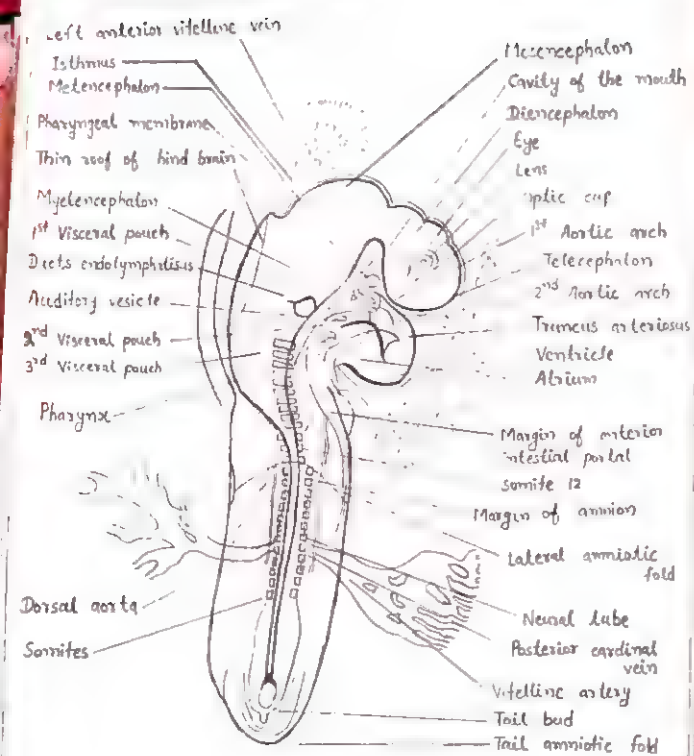 Left anterior vitelline vein
Isthmius
Metencephalon
Pharyngeal membrane
Thin roof of hind brain
Myelencephalon
1st Visceral pouch
Ducts endolymphtisus
Auditory vesicle
2nd Visceral pouch
3rd Visceral pouch
Pharynx
Dorsal aorta
Somites
Mesencephalon
Cavity of the mouth
Diencephalon
Eye
Lens
optic cup
1st Aortic arch
Telecephalon
2nd Aortic arch
Truncus arteriosus
Ventricle
Atrium
Margin of anterior
intestial portal
somite 12
Margin of amnion
Lateral amniotic
fold
Neural tube
Posterior cardinal
vein
Vitelline artery
Tail bud
Tail amniotic fold